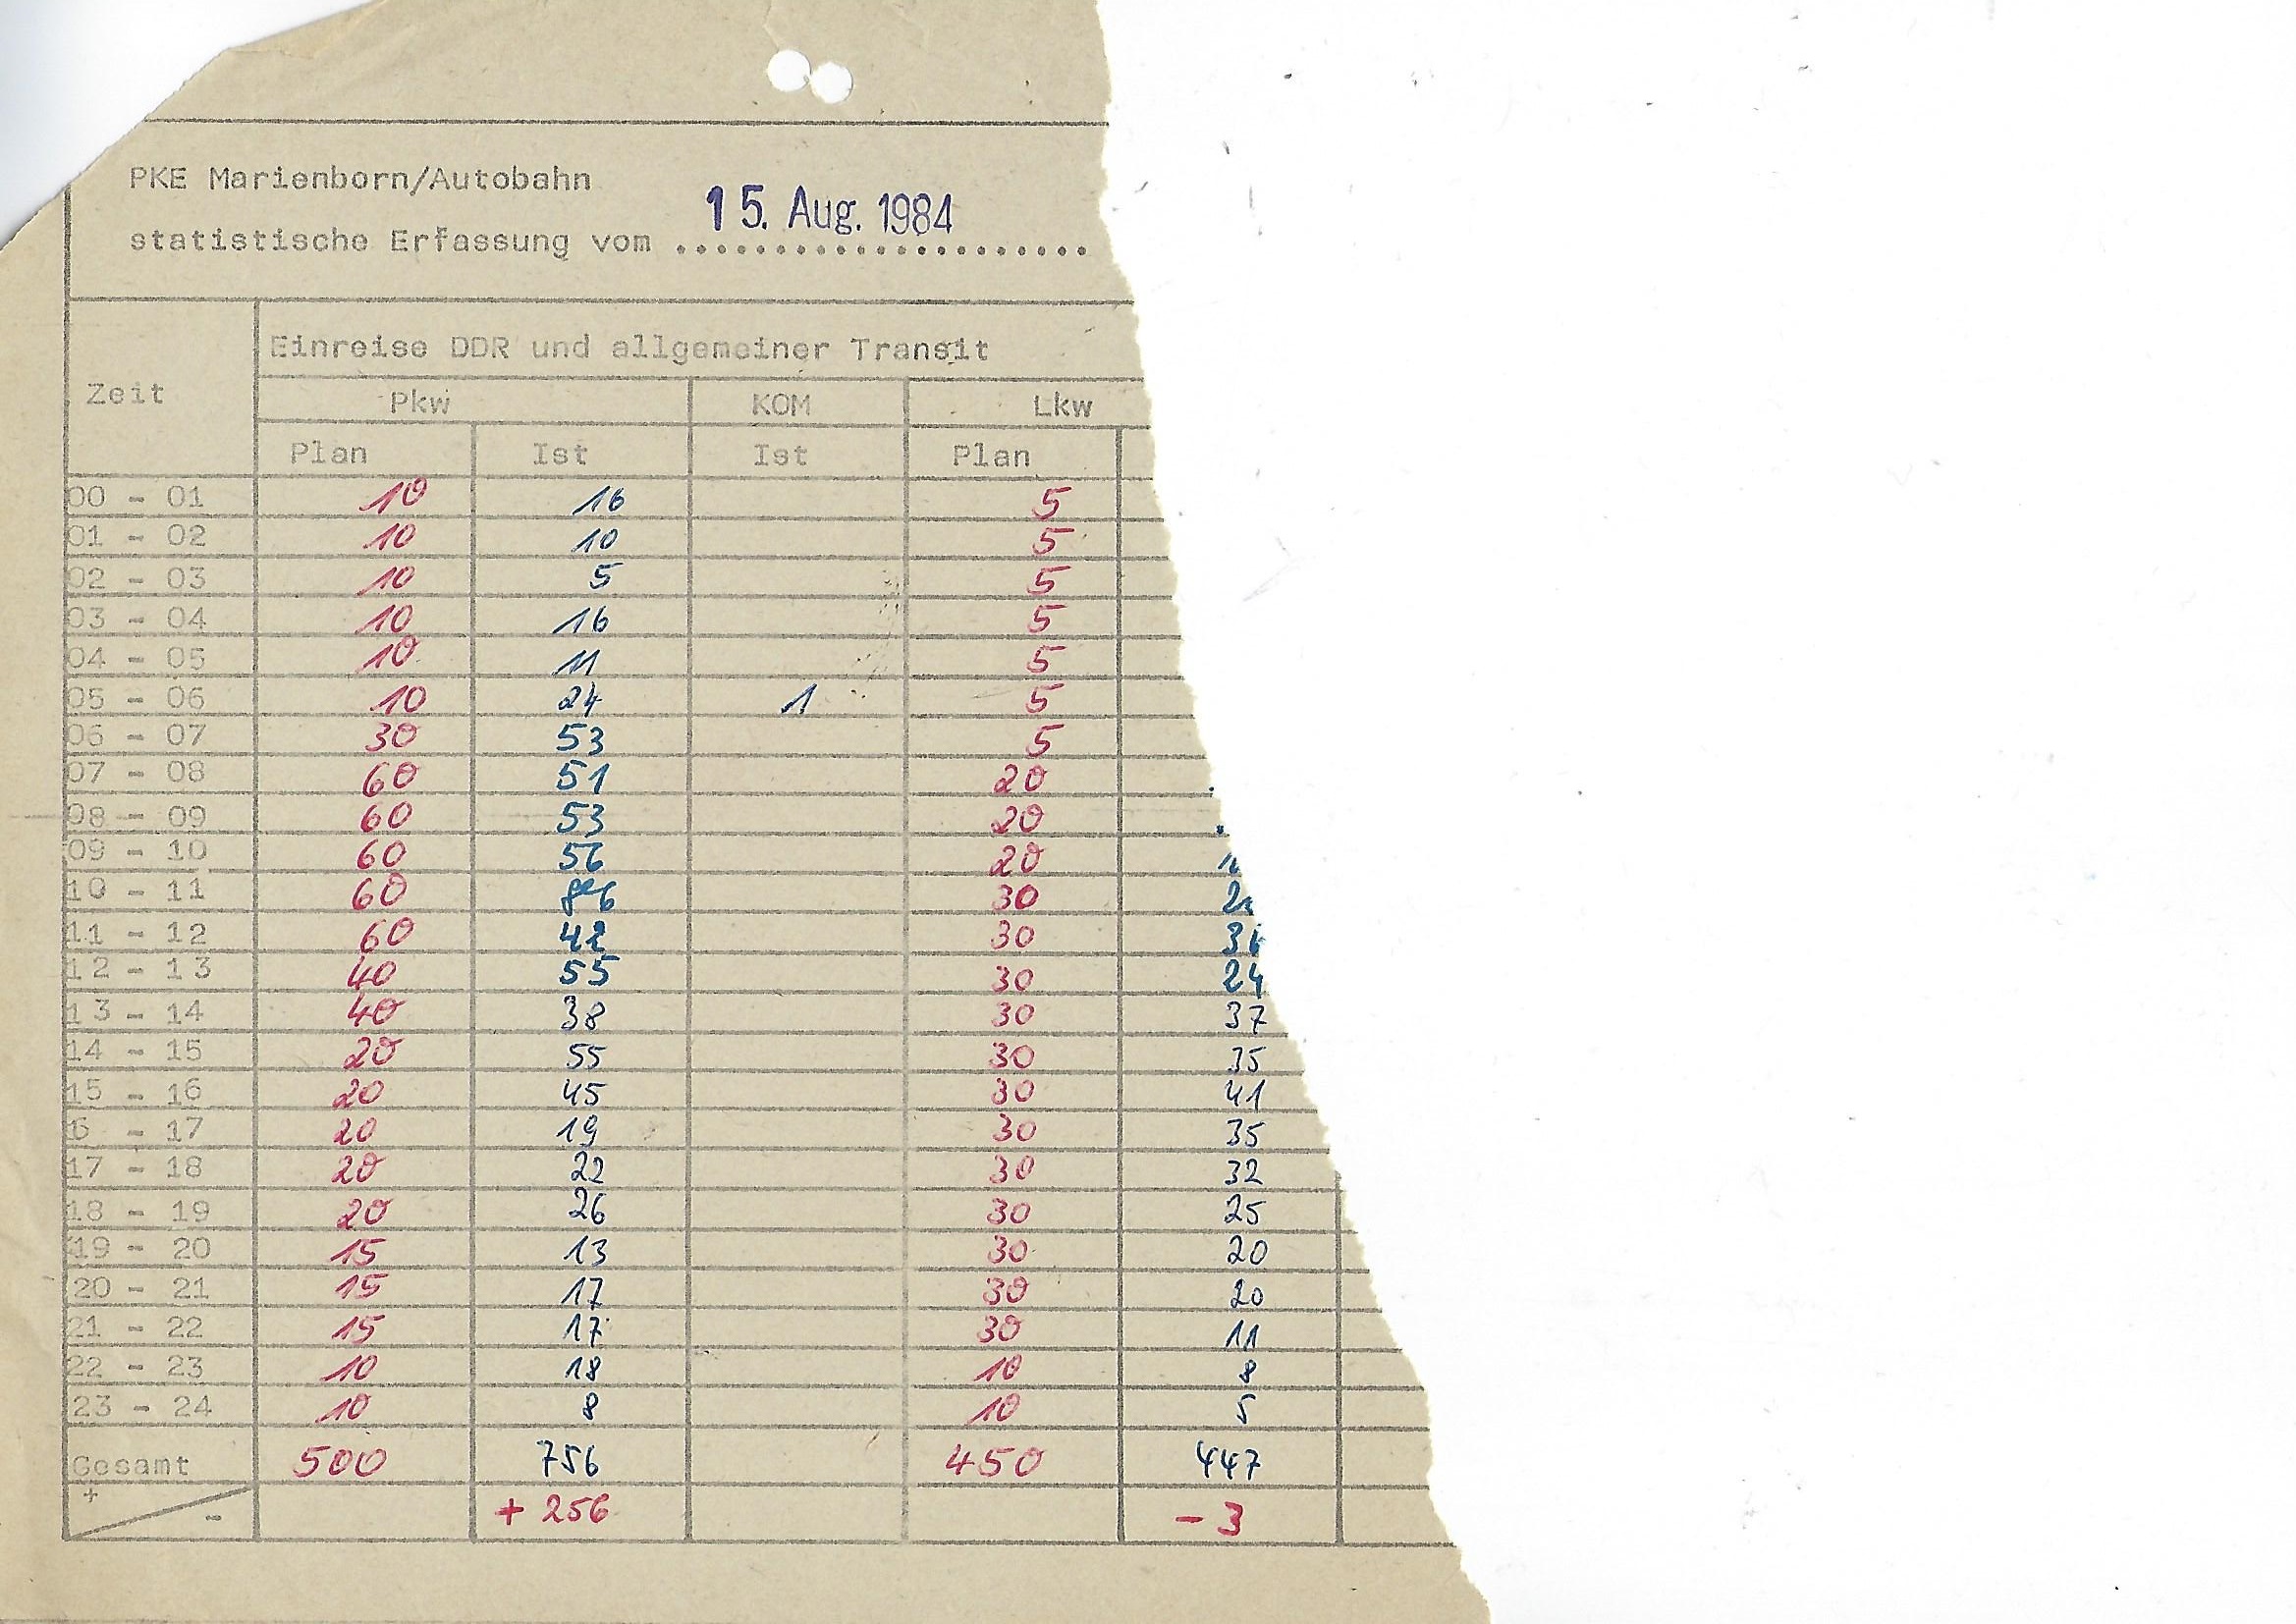 PKE Marienborn/Autobahn
15. Aug. 1984
statistische Erfassung vom .....................
Einreise DDR und allgemeiner Transit
Zeit
Pkw KOM Lkw
Plan Ist Ist Plan
00 - 01 10 16 5
01 - 02 10 10 5
02 - 03 10 5 5
03 - 04 10 16 5
04 - 05 10 11 5
05 - 06 10 24 1 5
06 - 07 30 53 5
07 - 08 60 51 20
08 - 09 60 53 20
09 - 10 60 56 20
10 - 11 60 30
11 - 12 60 42 30
12 - 13 40 55 30 24
13 - 14 40 38 30 37
14 - 15 20 55 30 35
15 - 16 20 45 30 41
6 - 17 20 19 30 35
17 - 18 20 22 30 32
18 - 19 20 26 30 25
19 - 20 15 13 30 20
20 - 21 15 17 30 20
21 - 22 15 17 30 11
22 - 23 10 18 10 8
23 - 24 10 8 10 5
Gesamt 500 756 450 447
+ - + 256 - 3